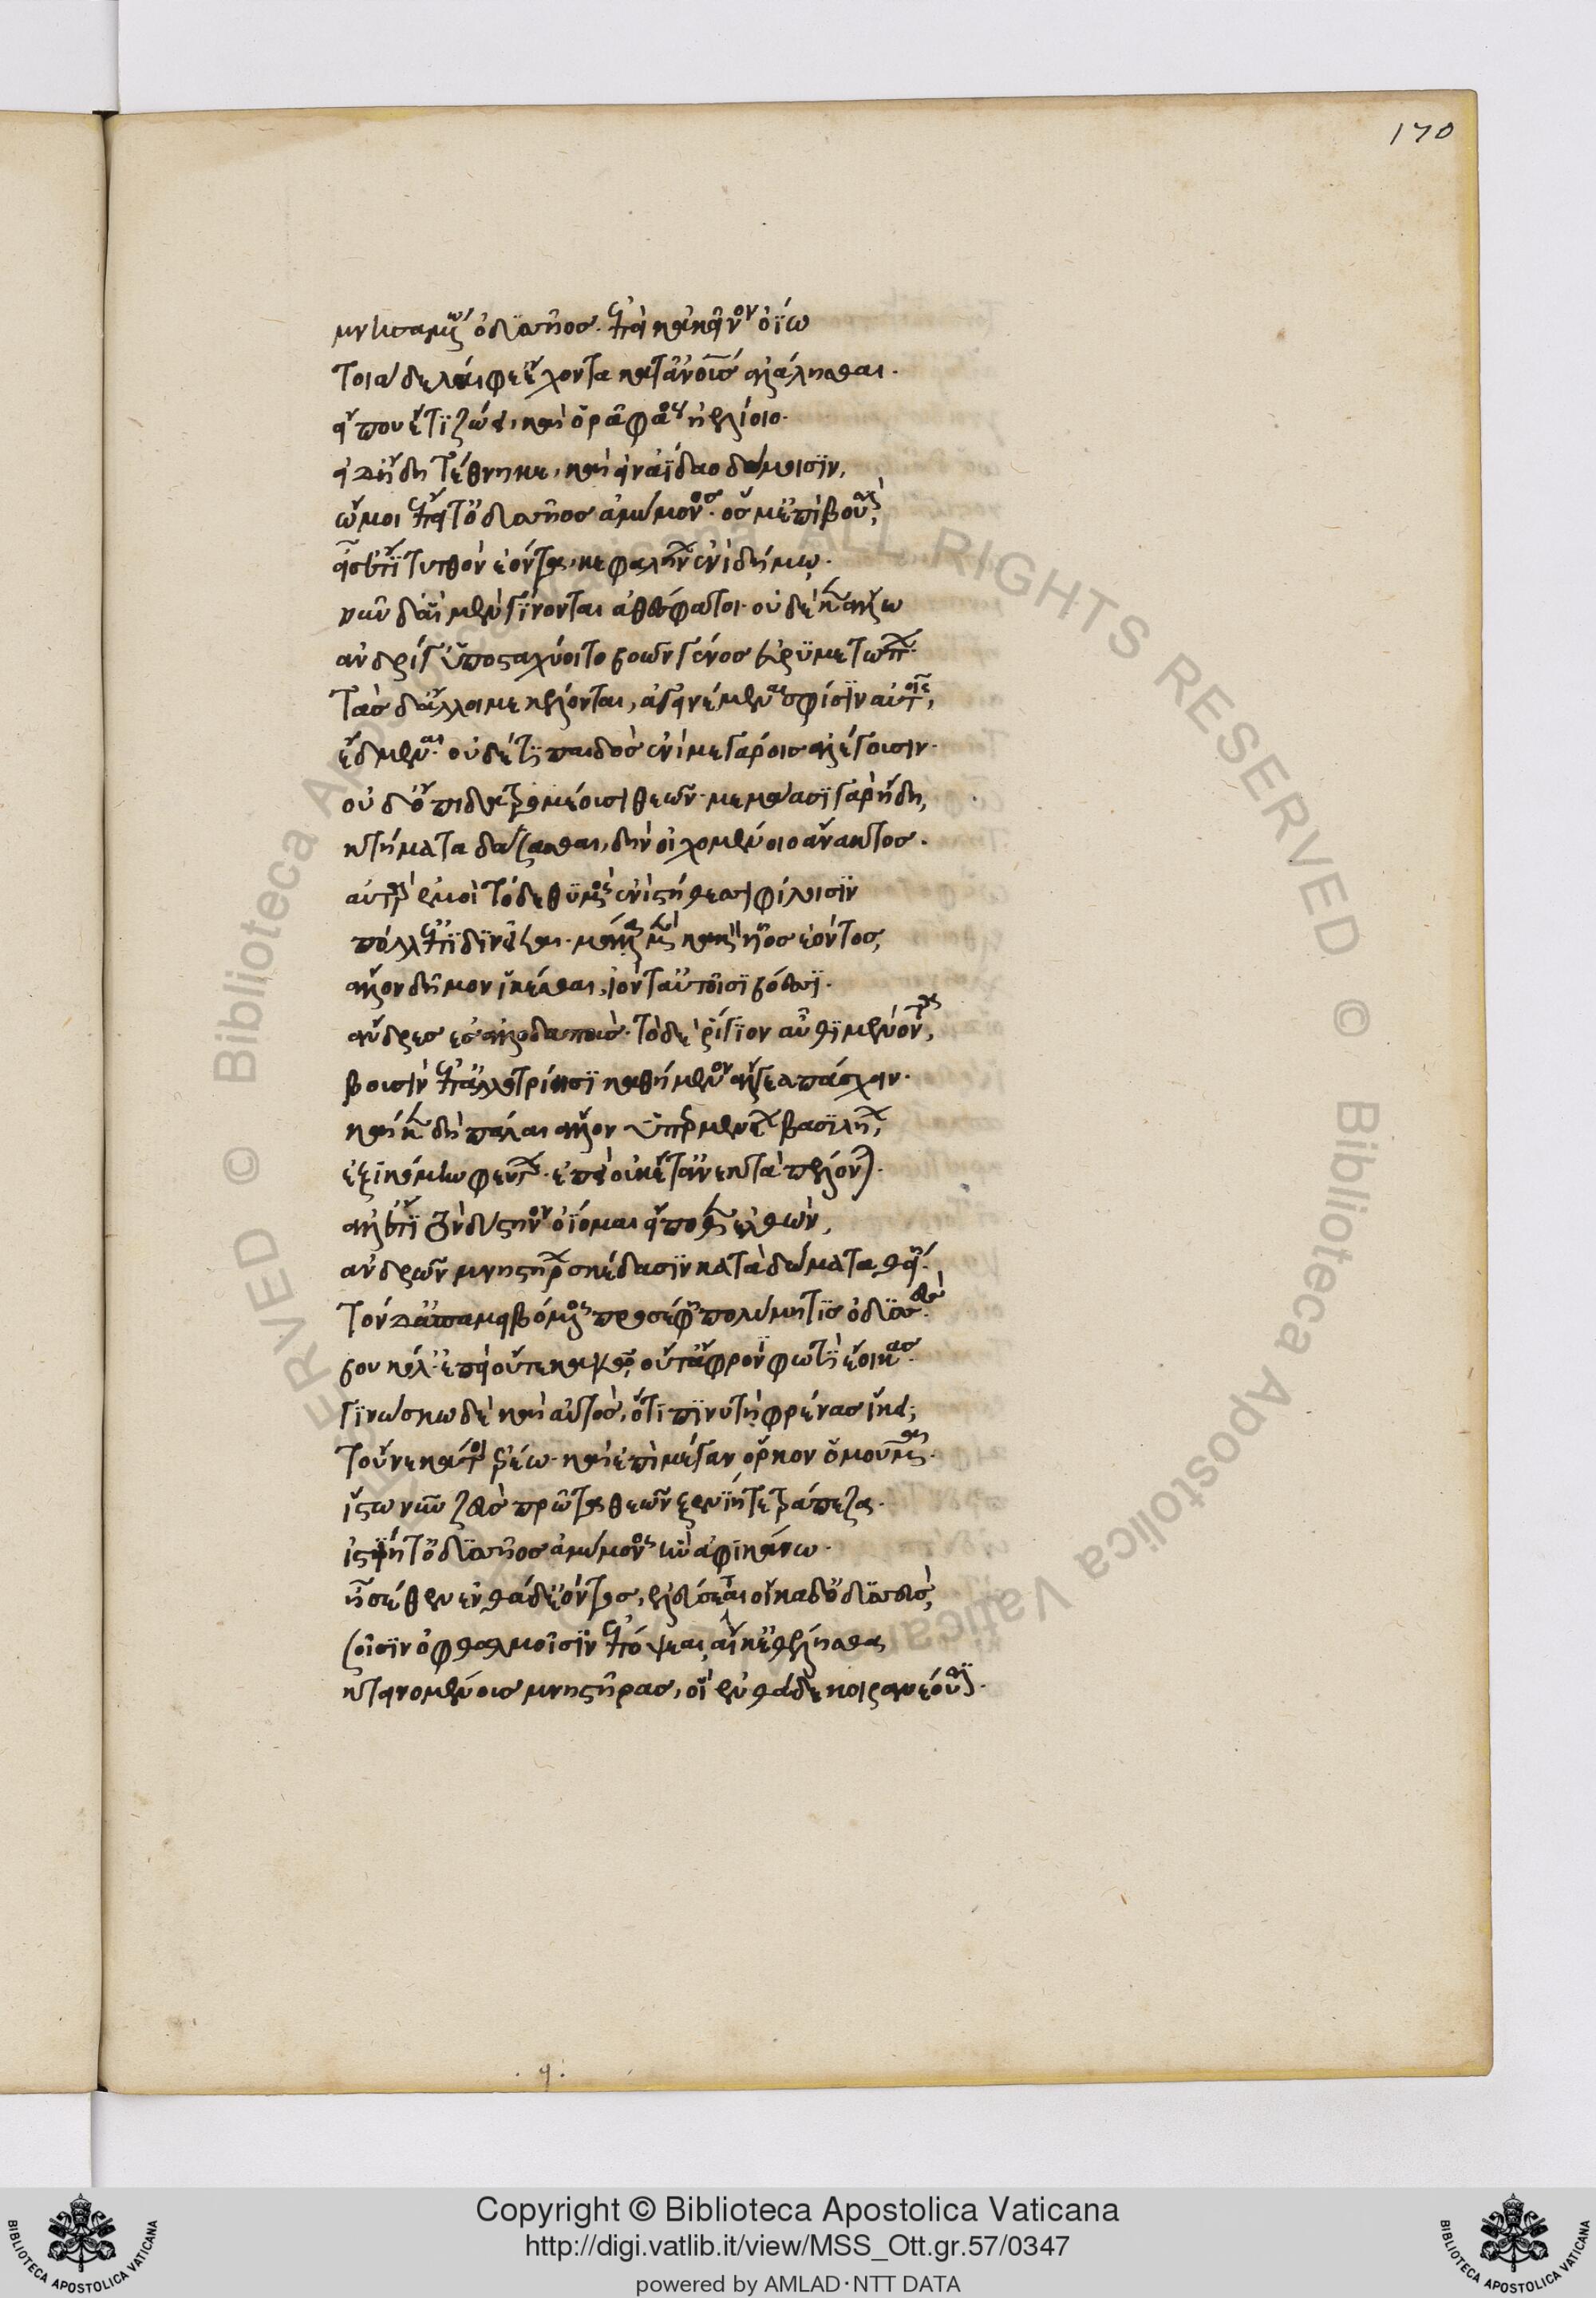 170
μνησαμένω ὀδυσῆος· ἐπεὶ καὶ κεῖνον ὀΐω
τοιάδε λαίφε' ἔχοντα κατ' ἀνθρώπους ἀλάλησθαι·
εἴ που ἔτι ζώει, καὶ ὁρᾶ φάος ἠελίοιο·
εἰ δ' ἤδη τέθνηκε, καὶ εἰν ἀΐδαο δόμοισιν,
ὤμοι ἔπειτ' ὀδυσῆος ἀμύμονος· ὅς μ' ἐπὶ βουσὶ,
εἷσ' ἔτι τυτθὸν ἐόντα, κεφαλήνων ἐνὶ δήμω·
νῦν δ' αἱ μὲν γίνονται ἀθέσφατοι· οὐδέ κεν ἄλλω
ἀνδρί γ' ὑποσταχύοιτο βοῶν γένος εὐρυμετώπων·
τὰς δ' ἄλλοι με κέλονται, ἀγινέμεναι σφίσιν αὐτοῖς,
ἔδμεναι· οὐδέ τι παιδὸς ἐνὶ μεγάροις ἀλέγουσιν·
οὐδ' ὄπιδα τρομέουσι θεῶν· μεμάασι γὰρ ἤδη,
κτήματα δάσσασθαι, δὴν οἰχομένοιο ἄνακτος·
αὐτὰρ ἐμοὶ τόδε θυμὸς ἐνὶ στήθεσσι φίλοισιν
πόλλ' ἐπιδινεῖται· μάλα μὲν κακὸν υἷος ἐόντος,
ἄλλον δῆμον ἱκέσθαι, ἰόντ' αὐτῆισι βόεσσι·
ἄνδρας ἐς ἀλλοδαποὺς· τὸ δὲ ῥίγιον αὖθι μένοντα,
βουσὶν ἐπ' ἀλλοτρίησι καθήμενον ἄλγεα πάσχειν·
καί κεν δὴ πάλαι ἄλλον ὑπερμενέων βασιλήων,
ἐξικόμην φεύγων· ἐπεὶ οὐκέτ' ἀνεκτὰ πέλονται·
ἀλλ' ἔτι τὸν δύστηνον ὀΐομαι εἴ ποθεν ἐλθὼν,
ἀνδρῶν μνηστήρων σκέδασιν κατὰ δώματα θείη·
τὸν δ' ἀπαμειβόμενος προσέφη πολύμητις ὀδυσσεύς·
βουκόλ' ἐπεὶ οὔτε κακῶ, οὔτ' ἄφρονι φωτὶ ἔοικας·
γινώσκω δὲ καὶ αὐτὸς, ὅτι πινυτὴ φρένας ἵκει,
τοὔνεκά τοι ἐρέω· καὶ ἐπὶ μέγαν ὅρκον ὀμοῦμαι·
ἴστω νῦν ζεὺς πρῶτα θεῶν ξενίη τε τράπεζα·
ἱστίη τ' ὀδυσῆος ἀμύμονος ἣν ἀφικάνω·
ἦ σέθεν ἐνθάδ' ἐόντος, ἐλεύσεται οἴκαδ' ὀδυσσεὺς,
σοῖσιν ὀφθαλμοῖσιν ἐπόψεαι, αἴ κ' ἐθέλησθα
κτεινομένους μνηστῆρας, οἳ ἐνθάδε κοιρανέουσι·
Copyright © Biblioteca Apostolica Vaticana
http://digi.vatlib.it/view/MSS_Ott.gr.57/0347
powered by AMLAD·NTT DATA